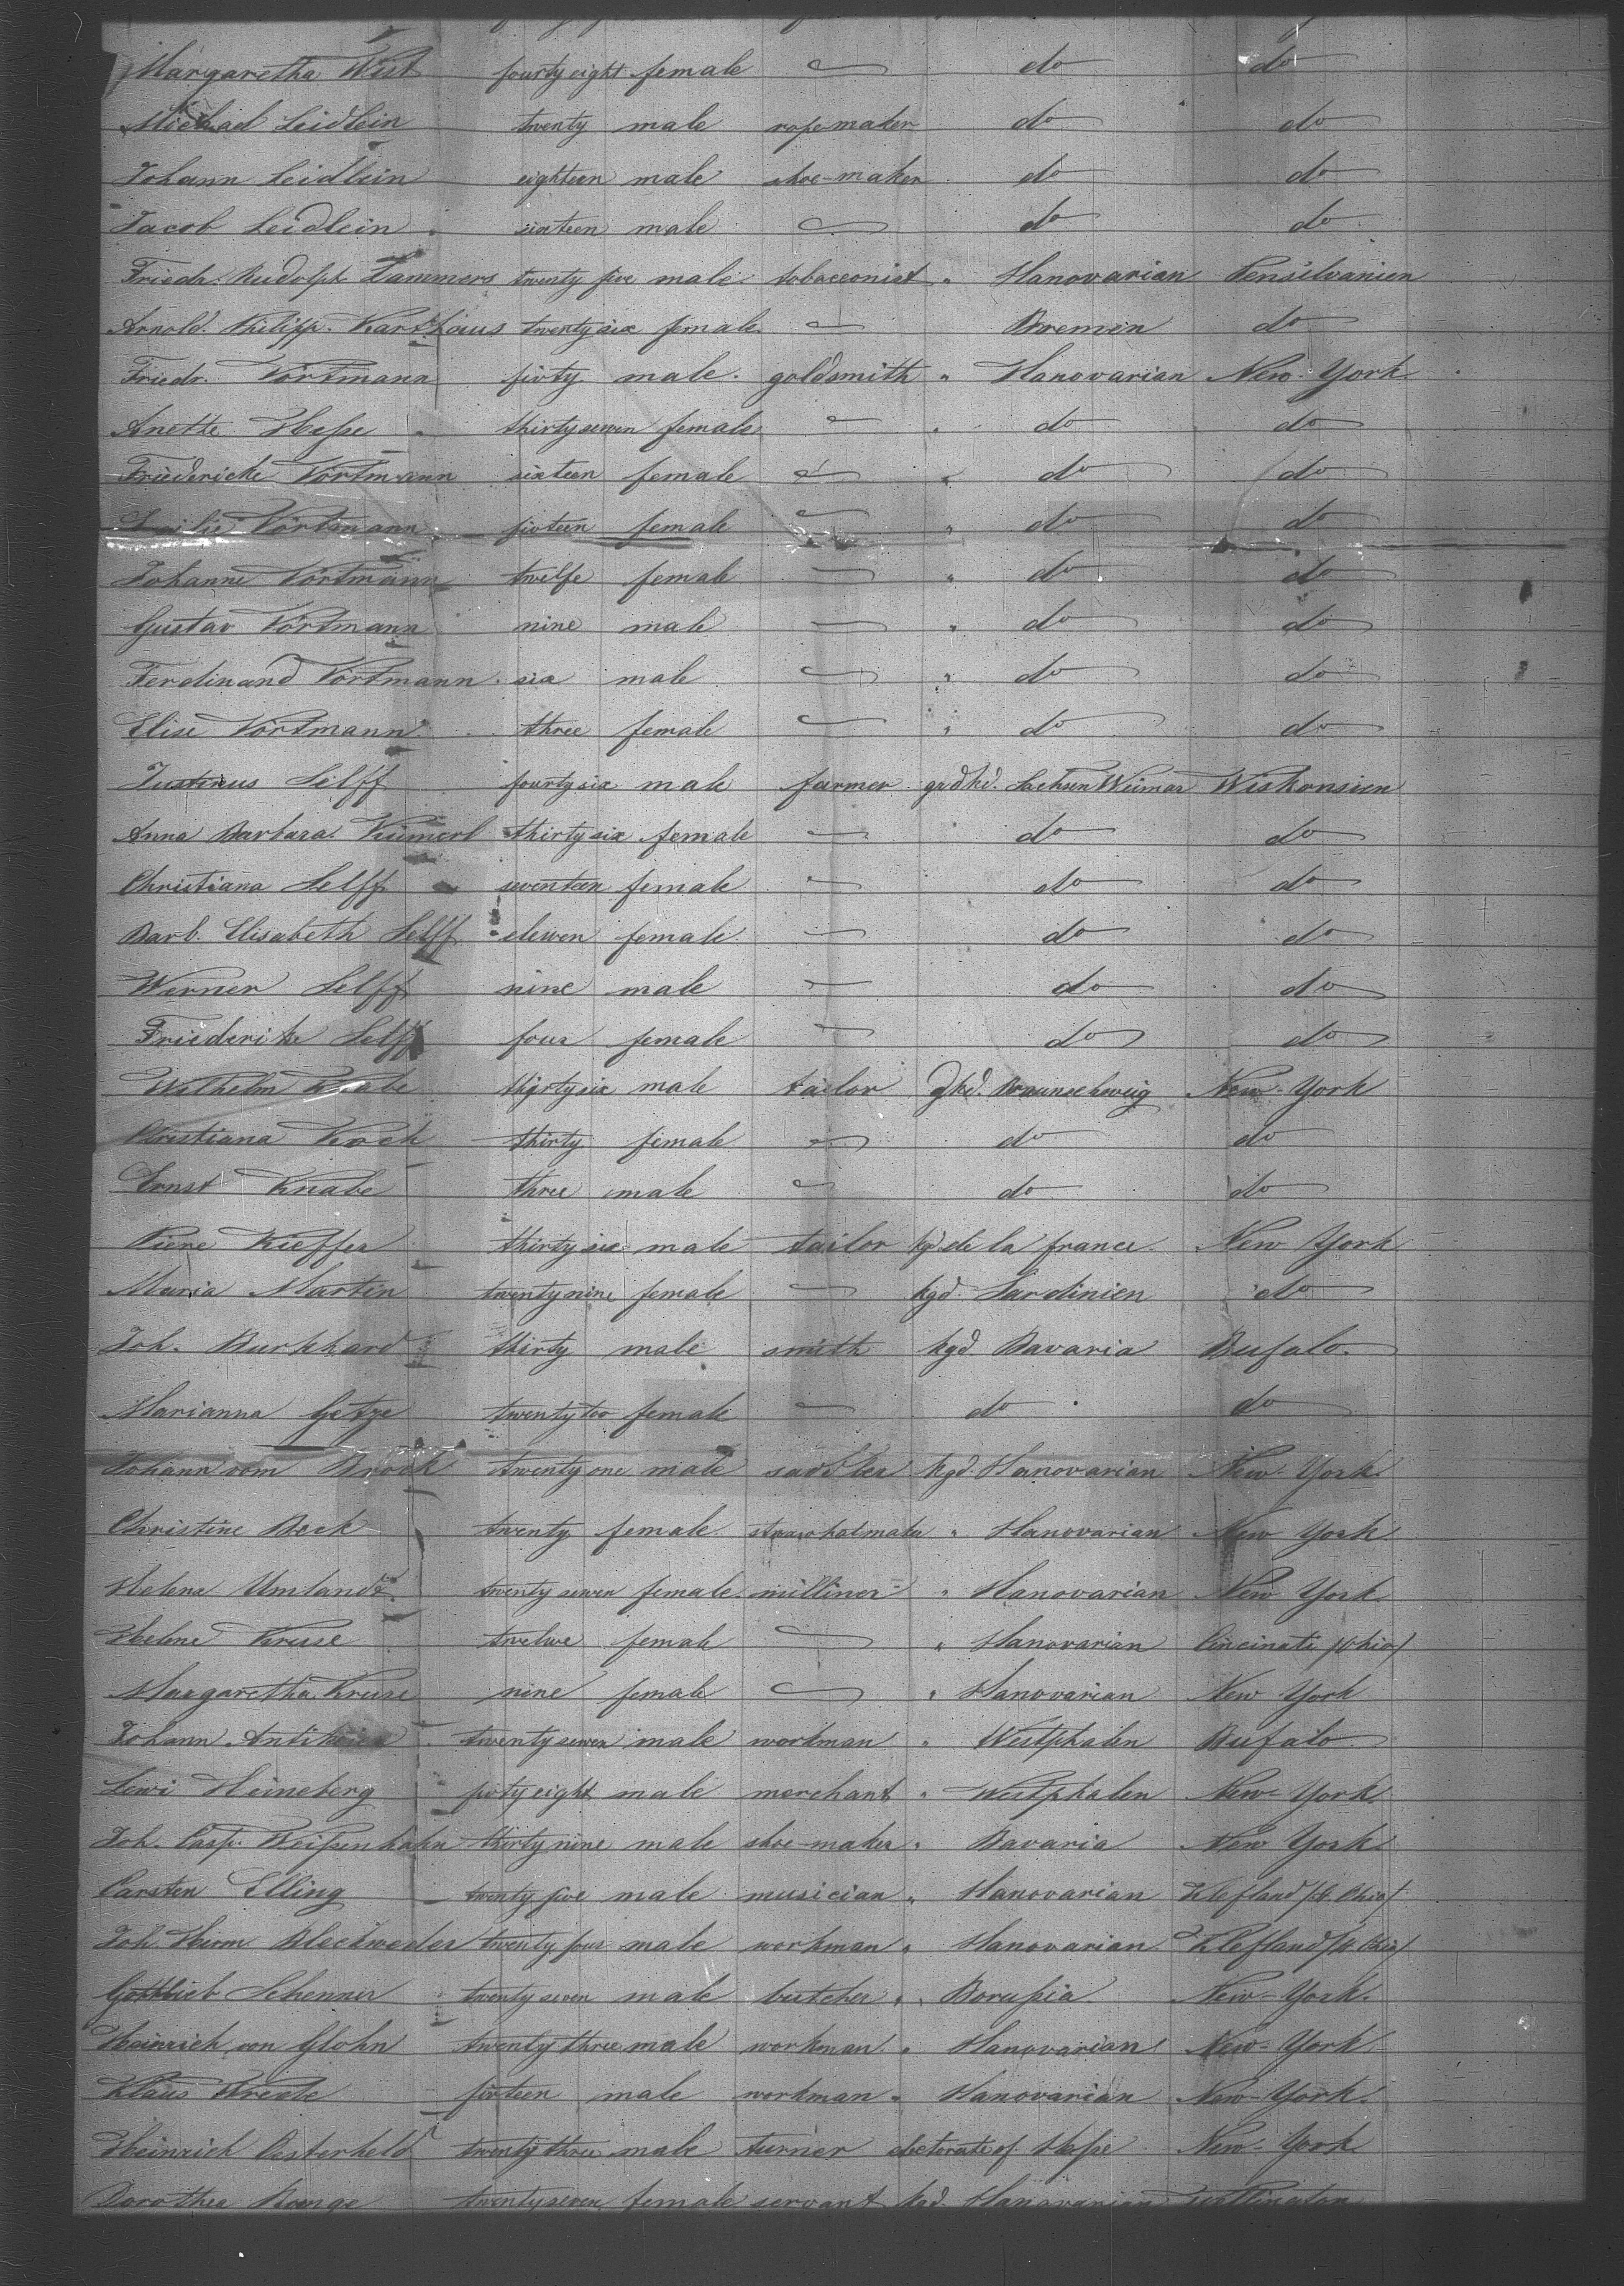 Margaretha Wist fourty eight female do do
Michael Leidlein twenty male ropemaker do do
Johann Leidlein eighteen male shoe-maker do do
Jacob Leidlein sixteen male do do
Friedr. Rudolph Lammers twenty five male tobacconist " Hanovarian Pensilvanien
Arnold Philipp Karthaus twenty six female Bremen do
Friedr. Vörtmann fivty male goldsmith " Hanovarian New-York
Anette Heße thirty seven female " do do
Friedericke Vörtmann sixteen female " do do
Vörtmann fivteen female " do do
Johanne Vörtmann twelfe female " do do
Gustav Vörtmann nine male " do do
Ferdinand Vörtmann six male " do do
Elise Vörtmann three female " do do
Justinus Selff fourty six male farmer grdhd. Sachsen Weimar Wiskonsien
Anna Barbara thirty six female do do
Christiana Selff seventeen female do do
Barb. Elisabeth Selff elewen female do do
Werner Selff nine male do do
Friederike Selff four female do do
Wilhelm Knabe thirty six male tailor Braunschweig New-York
Christiana Koch thirty female do do
Ernst Knabe three male do do
Piere Kieffer thirty six male tailor kgd. de la france New York
Maria Martin twenty nine female kgd. Sardinien do
Joh. Burkhard thirty male smith kgd. Bavaria Bufalo
Marianna Getze twenty two female do do
Johann vom Brock twenty one male saddler kgd. Hanovarian New-York
Christine Beck twenty female strawhatmaker " Hanovarian New York
Helena Umlandt twenty sewen female milliner " Hanovarian New York
Helene Kruse twelwe female " Hanovarian Cincinati /Ohio/
Margaretha Kruse nine female " Hanovarian New York
Johann twenty sewen male workman " Westphalen Bufalo
Lewi Heineberg fivty eight male merchant " Westphalen New-York
Joh. Casp. Weißenhahn thirty nine male shoe-maker " Bavaria New York
Carsten Elling twenty five male musician " Hanovarian Klefland /St. Ohio/
Joh. Herm Bleckweder twenty four male workman " Hanovarian Klefland /St. Ohio/
Gottlieb Schenner twenty seven male butcher " Borußia New-York
Heinrich von Glohn twenty three male workman " Hanovarian New-York
Klaus fivteen male workman " Hanovarian New-York
Heinrich Oesterheld twenty three male turner electorate of Heße New-York
Dorothea Bunge twenty seven female servant kgd. Hanovarian